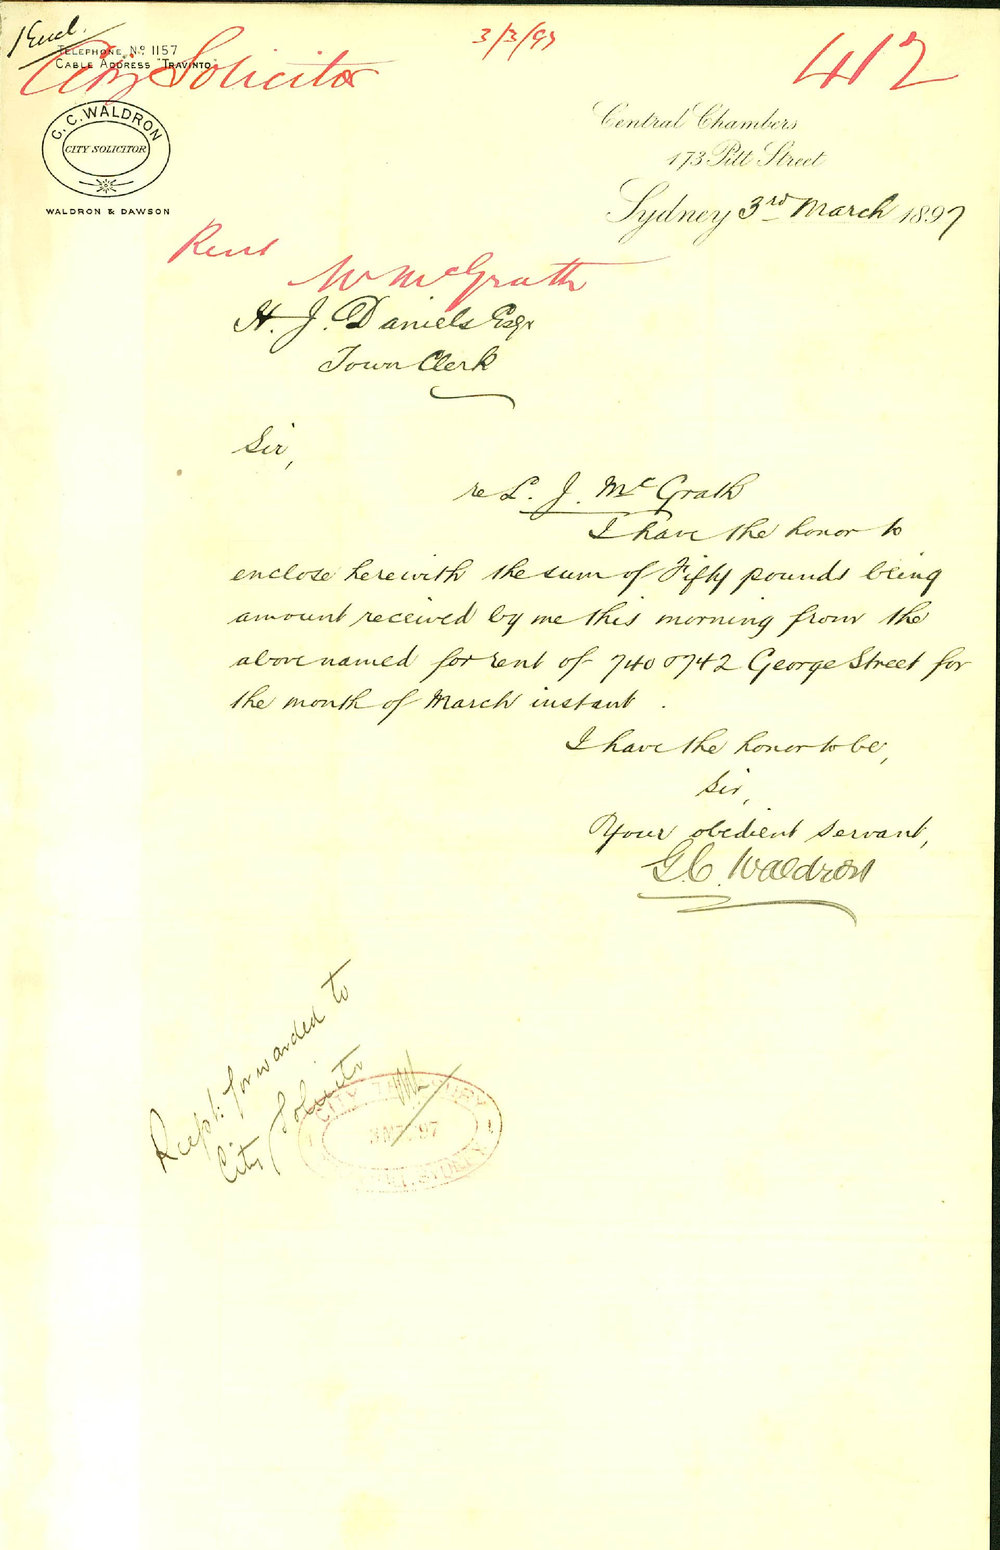 1 Encl.
TELEPHONE Nº 1157
CABLE ADDRESS "TRAVINTO"
City Solicitor
3/3/97
412
G. C. WALDRON
CITY SOLICITOR
WALDRON & DAWSON
Central Chambers
173 Pitt Street
Sydney 3rd March 1897
Rent
McGrath
H. J. Daniels Esqr
Town Clerk
Sir,
re L. J. McGrath
I have the honor to
enclose herewith the sum of Fifty pounds being
amount received by me this morning from the
above named for rent of 740 & 742 George Street for
the month of March instant.
I have the honor to be,
Sir,
Your obedient servant,
G.C. Waldron
Receipt forwarded to
City Solicitor
CITY
97